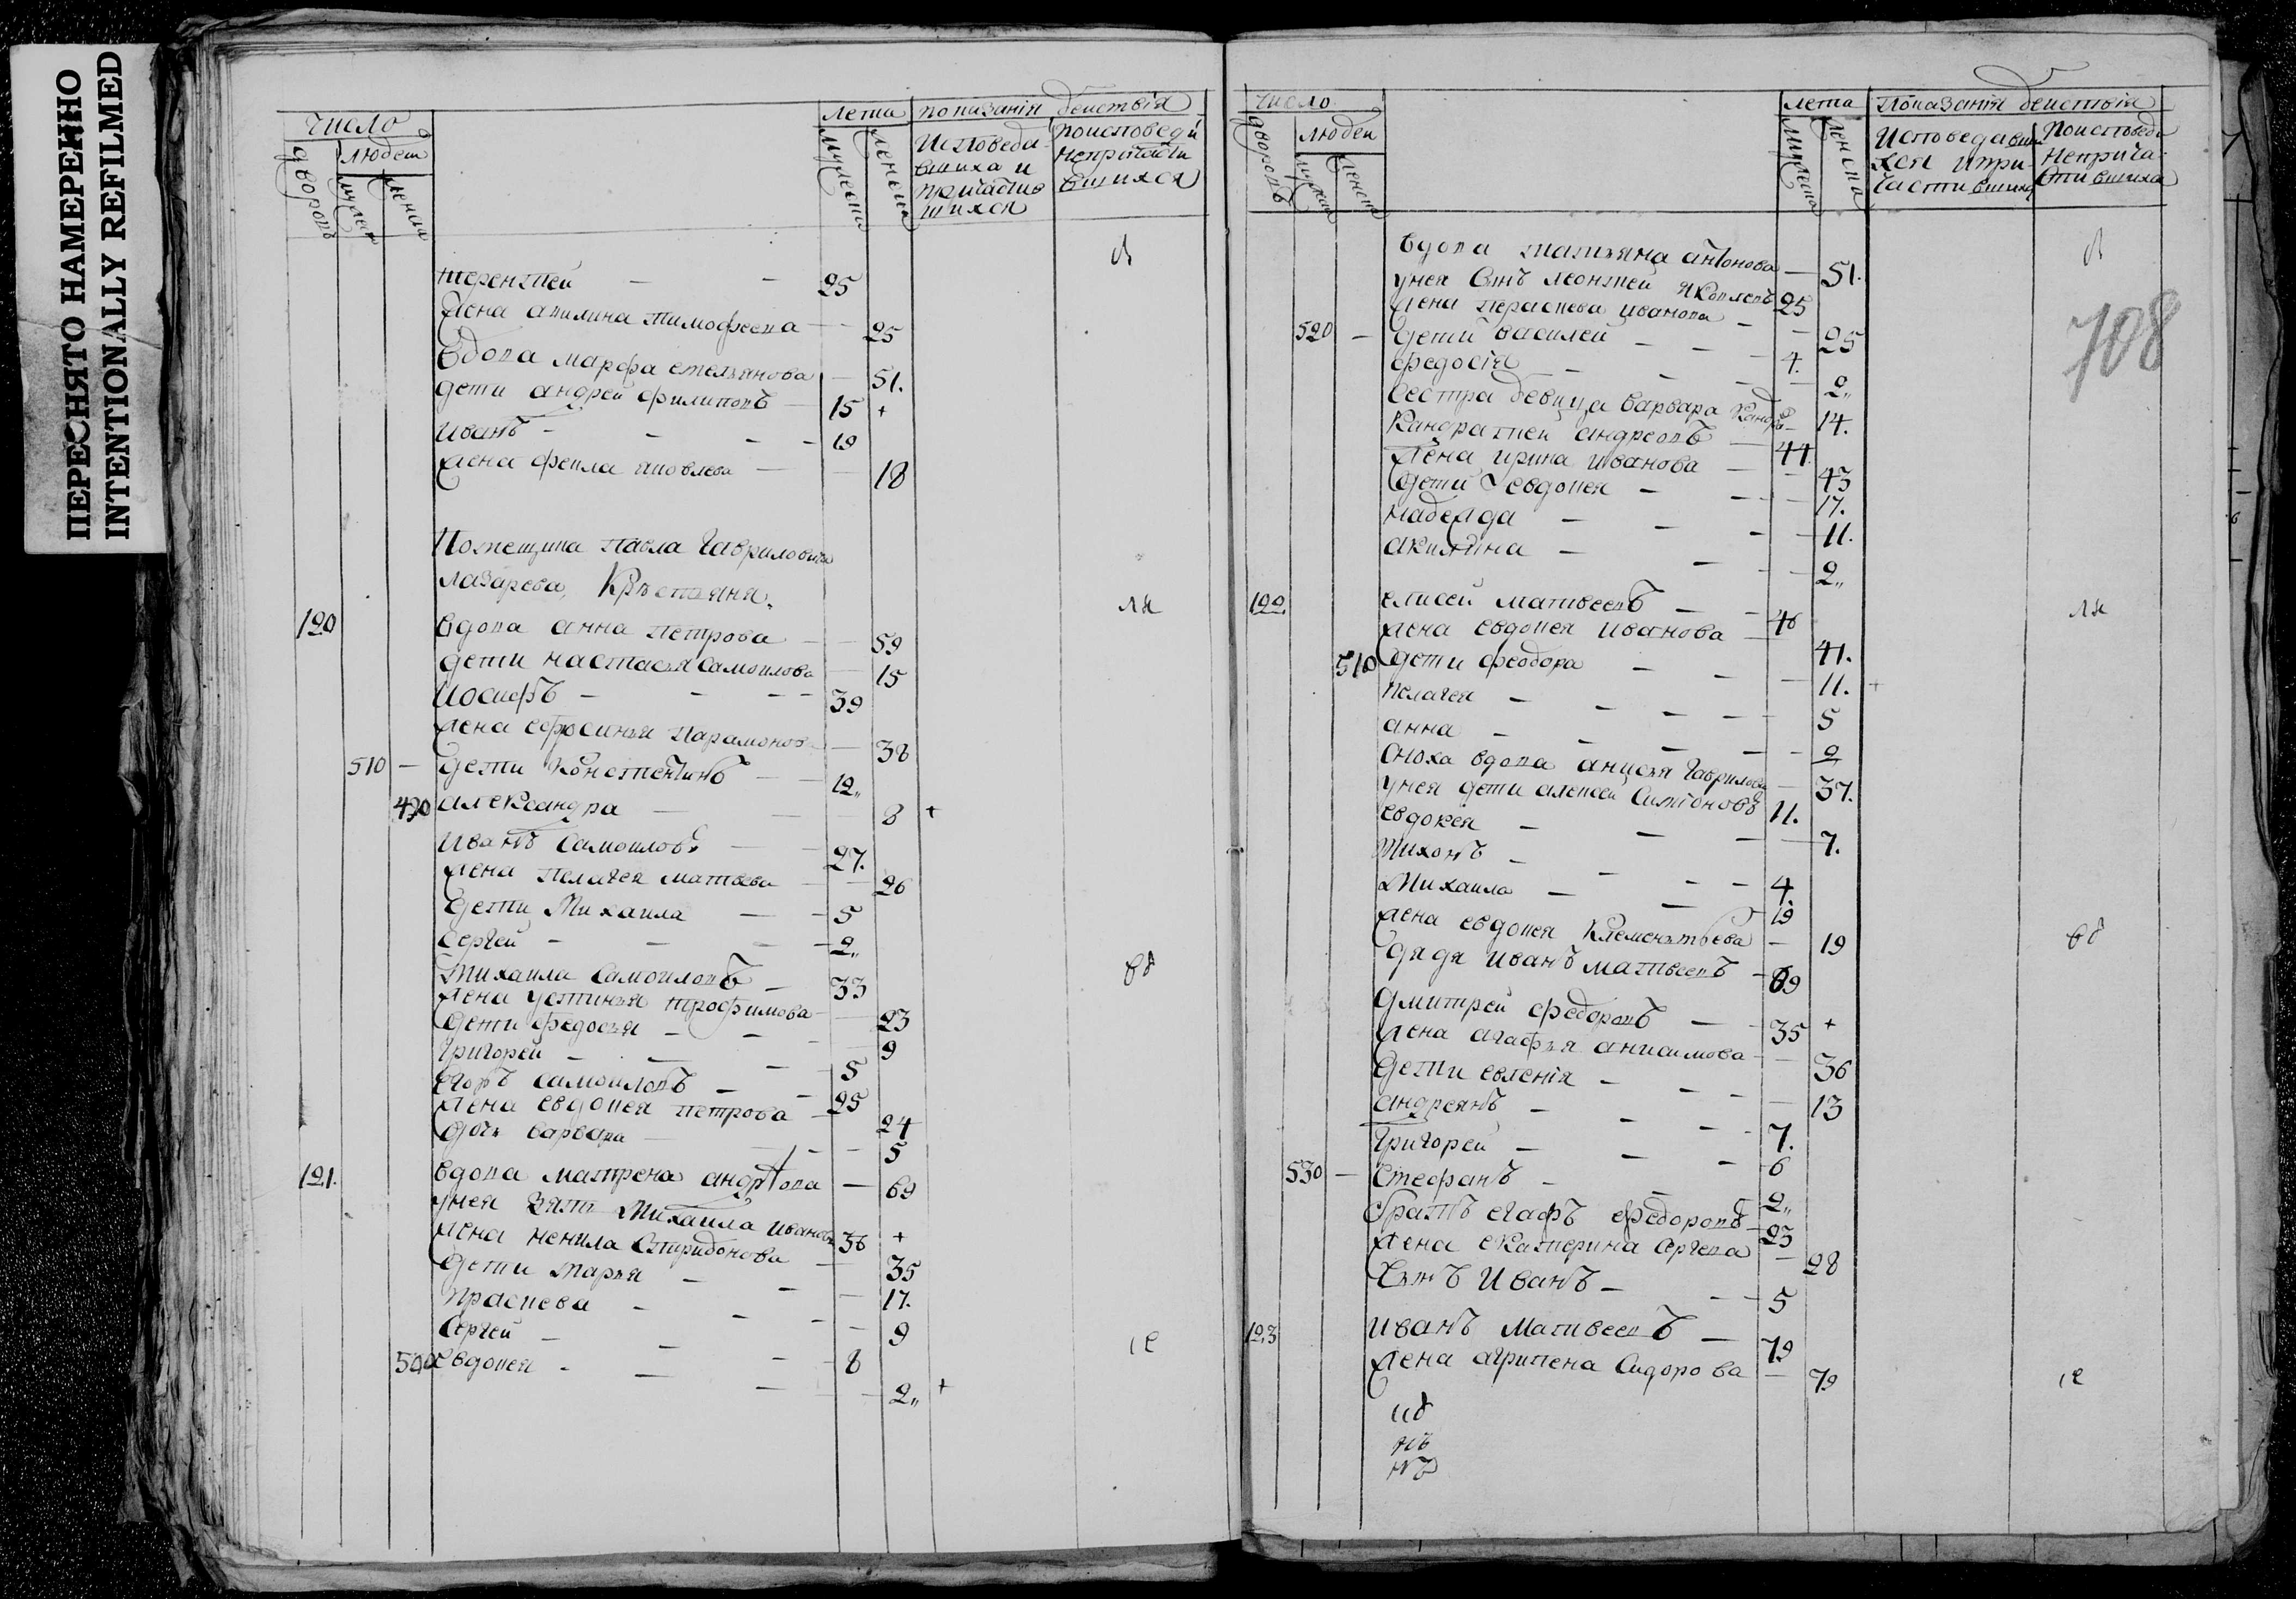 ПЕРЕСНЯТО НАМЕРЕННО
INTENTIONALLY REFILMED
число
дворовъ
людей
мужеска
женска
лета
мужеска
женска
показанiя
действiя
Исповеда
вшиха и
причастив
шихся
поисповеди
непричасти
вшихся
терентей — — 25
жена акилина тимофеева — 25
вдова марфа емельянова — 51.
дети андрей филиповъ — 15 +
иванъ — 19
жена фекла яковлева — 18
Помещика павла Гавриловича
лазарева, крестьяня.
120 вдова анна петрова — 59
дети настасья самоилова — 15
Иосифъ — 39
жена ефросинья парамонов — 38
510 — дети константинъ — 12,,
490 александра — 8 +
иванъ самоиловъ — 27.
жена пелагея матвева — 26
дети Михаила — 5
Сергей — 2,,
Михаила самоиловъ — 33
жена устинья трофимова — 23
дети федосья — 9
григорей — 5
егоръ самоиловъ — 25
жена евдокея петрова — 24
дочь варвара — 5
121. вдова матрена — 69
унея зять Михаила иванов 36 +
жена ненила спиридонова — 35
дети марья — 17.
праскева — 9
Сергей — 8
500 евдокея — 2,, +
число
дворовъ
людей
мужеска
женска
лета
мужеска
женска
показанiя действiя
Исповедавши
хся и при
частившихс
поисповеди
неприча
стившихс
708
вдова татьяна антонова — 51.
унея сынъ леонтей яковлевъ 25
жена параскева иванова — 25
520 — дети василей — 4.
федосiя — 2,,
сестра девица варвара — 14.
кандратей андреевъ — 44
жена ирина иванова — 43
дети евдокея — 17.
надежда — 11.
акилина — 2,,
122. елисей матвеевъ — 46
жена евдокея иванова — 41.
510 дети феодора — 11. +
пелагея — 5
анна — 2
сноха вдова анисья гаврилова — 37.
унея дети алексей симионовъ 11.
евдокея — 7.
тихонъ — 4.
Михаила — 19
жена евдокея клементьева — 19
дядя иванъ матвеевъ — 69
дмитрей федоровъ — 35 +
жена агафья анисимова — 36
дети евгенiя — 13
андреянъ — 7.
григорей — 6
530 — стефанъ — 2,,
братъ федоровъ — 23
жена екатерина сергева — 28
сынъ иванъ — 5
123 иванъ матвеевъ — 79
жена агрипена сидорова — 79